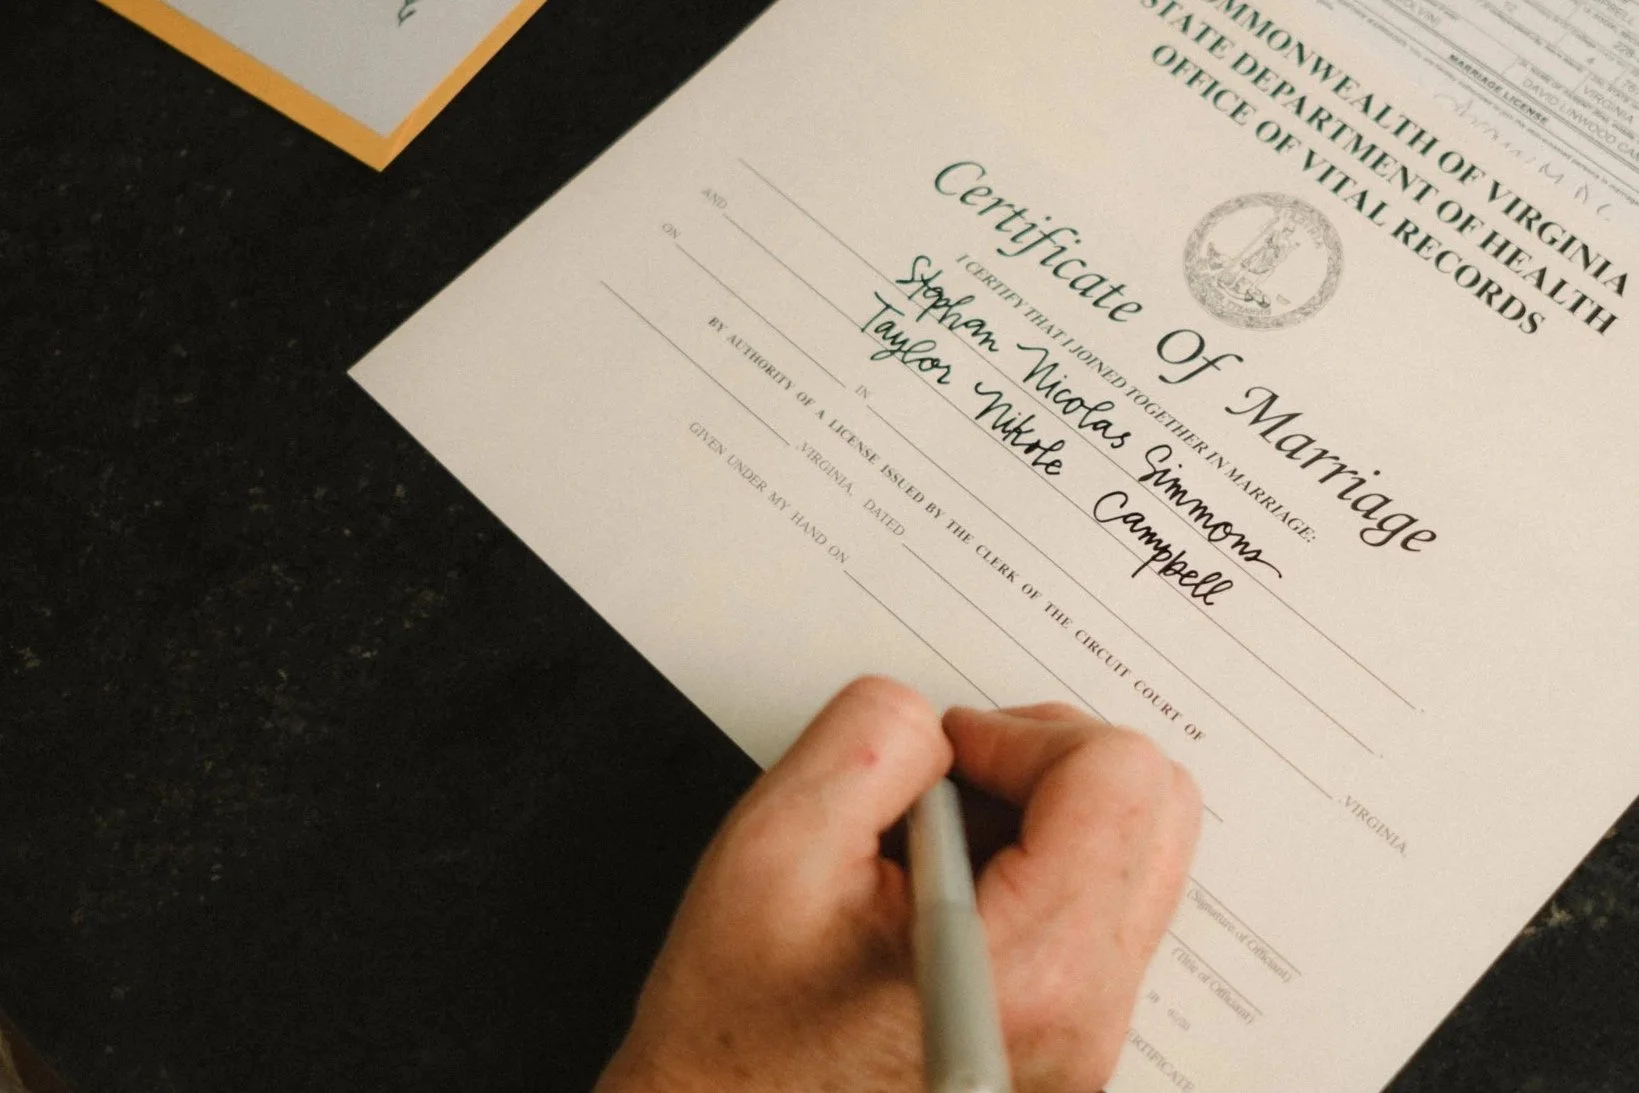 COMMONWEALTH OF VIRGINIA
STATE DEPARTMENT OF HEALTH
OFFICE OF VITAL RECORDS
MARRIAGE LICENSE
DAVID LINWOOD
VIRGINIA
Certificate Of Marriage
I CERTIFY THAT I JOINED TOGETHER IN MARRIAGE:
Stephan Nicolas Simmons
AND Taylor Nikole Campbell
ON IN , VIRGINIA,
BY AUTHORITY OF A LICENSE ISSUED BY THE CLERK OF THE CIRCUIT COURT OF
, VIRGINIA, DATED
GIVEN UNDER MY HAND ON
(Signature of Officiant)
(Title of Officiant)